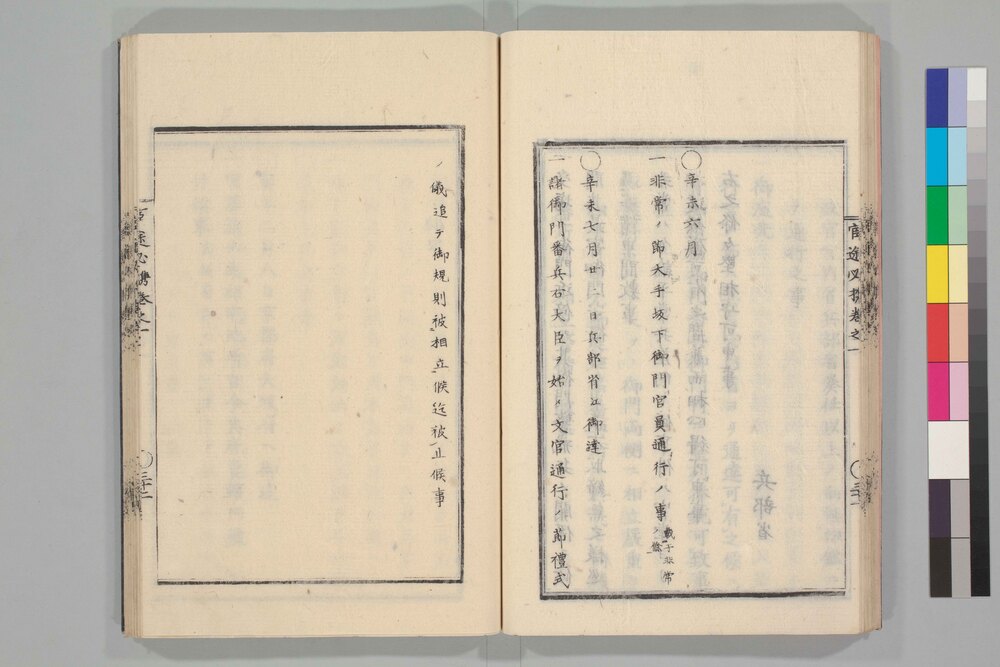 官途必携巻之一
〇辛未六月
一非常ノ節大手坂下御門官員通行ノ事
載于非常
〇辛未七月廿二日兵部省ヱ御達
一諸御門番兵右大臣ヲ始メ文官通行ノ節禮式
ノ儀追テ御規則被相立候迄被止候事
官途必携巻之一
三十二